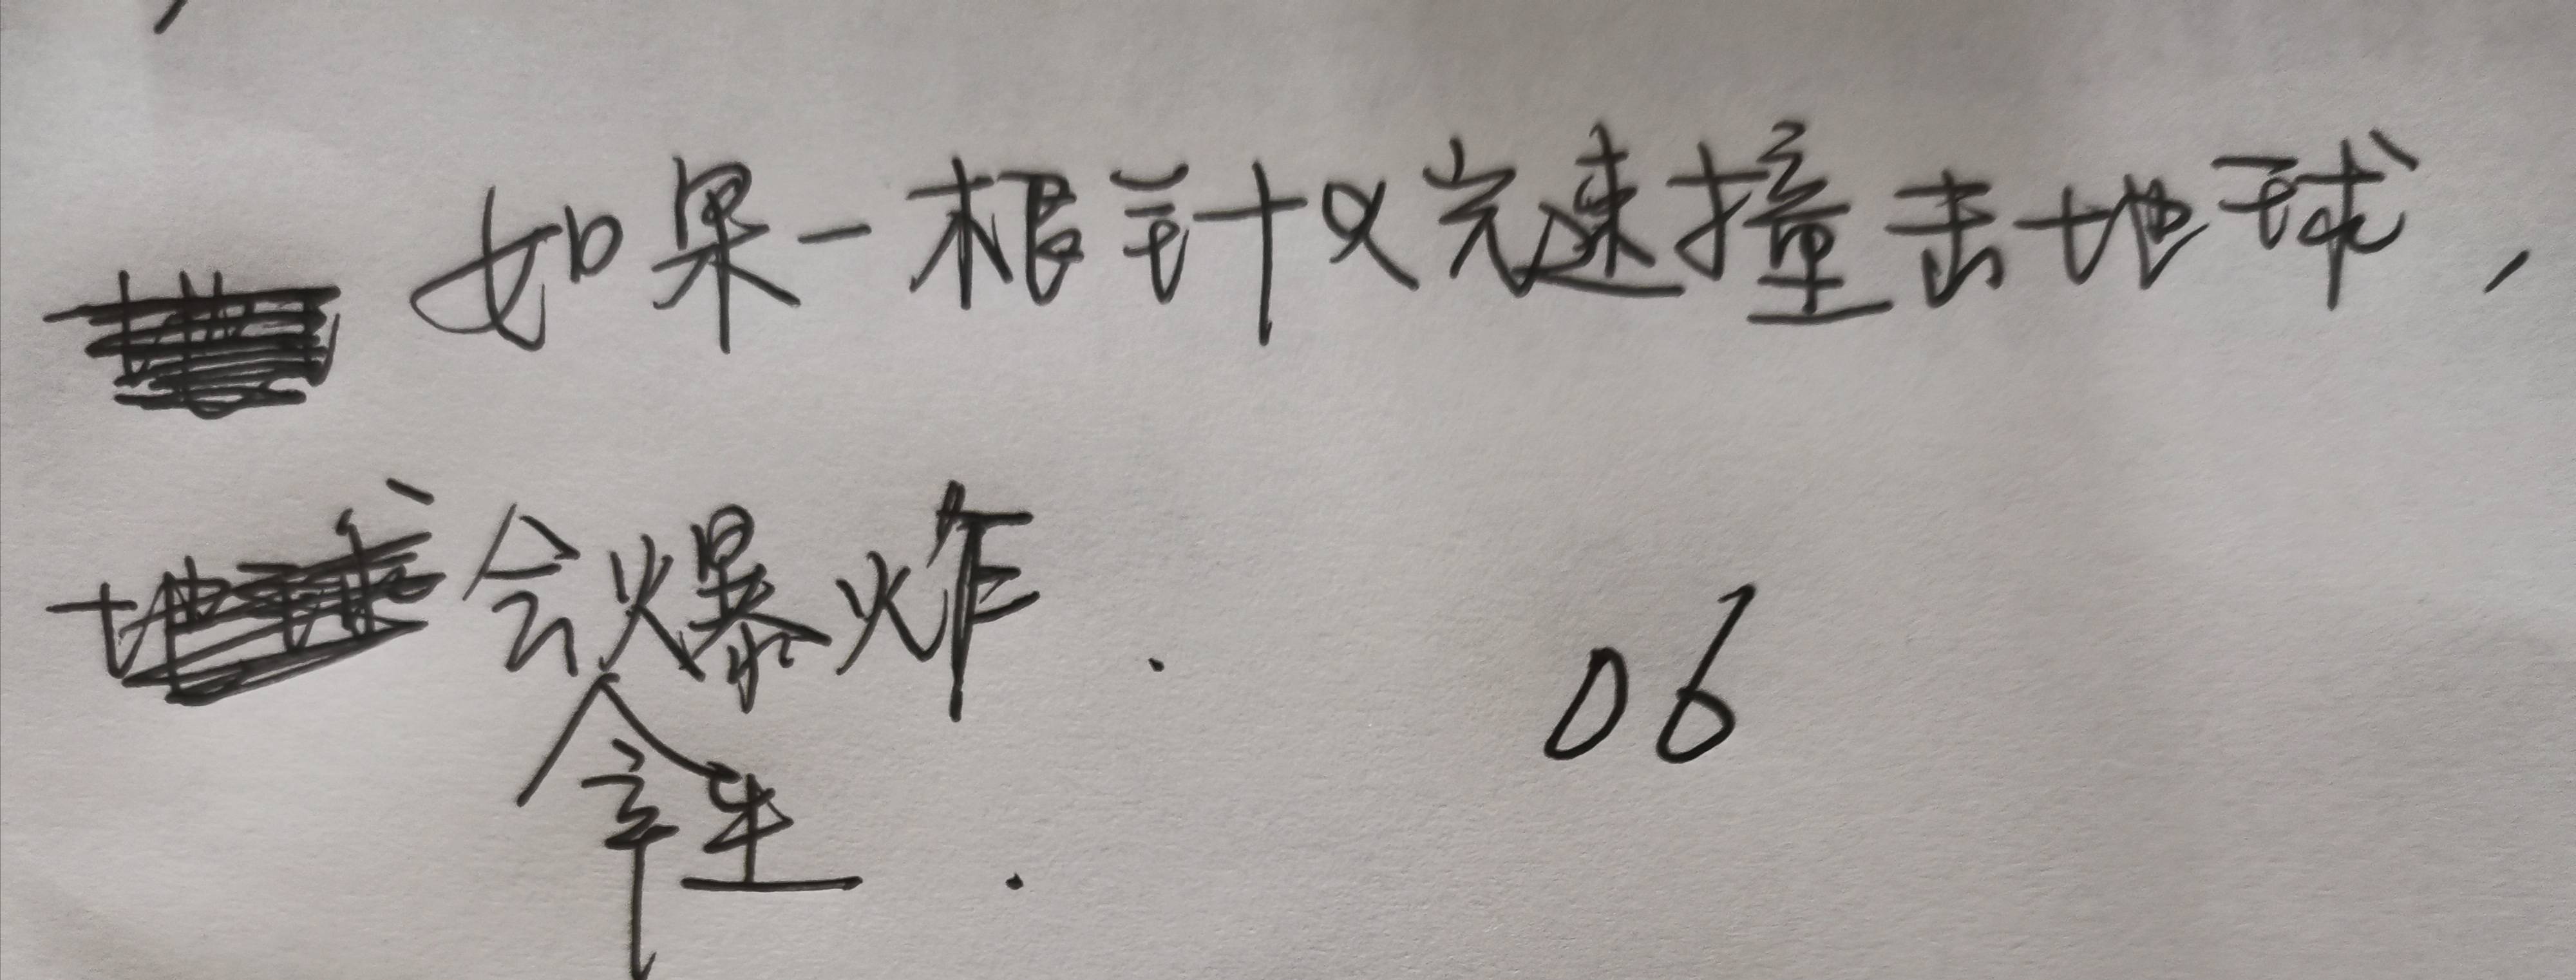 如果一根针以光速撞击地球,
会爆炸.
06